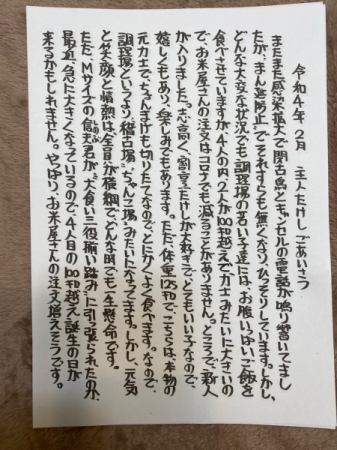 令和4年 2月 主人たけしごあいさつ
またまた感染拡大で閑古鳥とキャンセルの電話が鳴り響いてまし
たが、まん延防止でそれすらも無くなり、ひっそりしています。しかし、
どんな大変な状況でも調理場の若い子達には、お腹いっぱいご飯を
食べさせていますが4人の内、2人が100キロ越えで力士みたいに大きいの
で、お米屋さんの注文はコロナでも減ることがありません。ところで、新人
が入りました。志高く、割烹たけしが大好きで、とてもいい子なので、
嬉しくもあり、楽しみでもあります。ただ、体重125キロで、こちらは、本物の
元力士で、ちょんまげも切りたてなので、とにかくよく食べます。なので、
調理場というより、稽古場、ちゃんこ場、みたいになってます。しかし、元気
と笑顔と情熱は、全員が横綱で、どんな時でも一生懸命です。
ただ、Mサイズの信夫君が、大食い三役揃い踏みに引っ張られたのか、
最近、急に大きくなっているので、4人目の100キロ越え誕生の日が
来るかもしれません。やっぱり、お米屋さんの注文増えそうです。